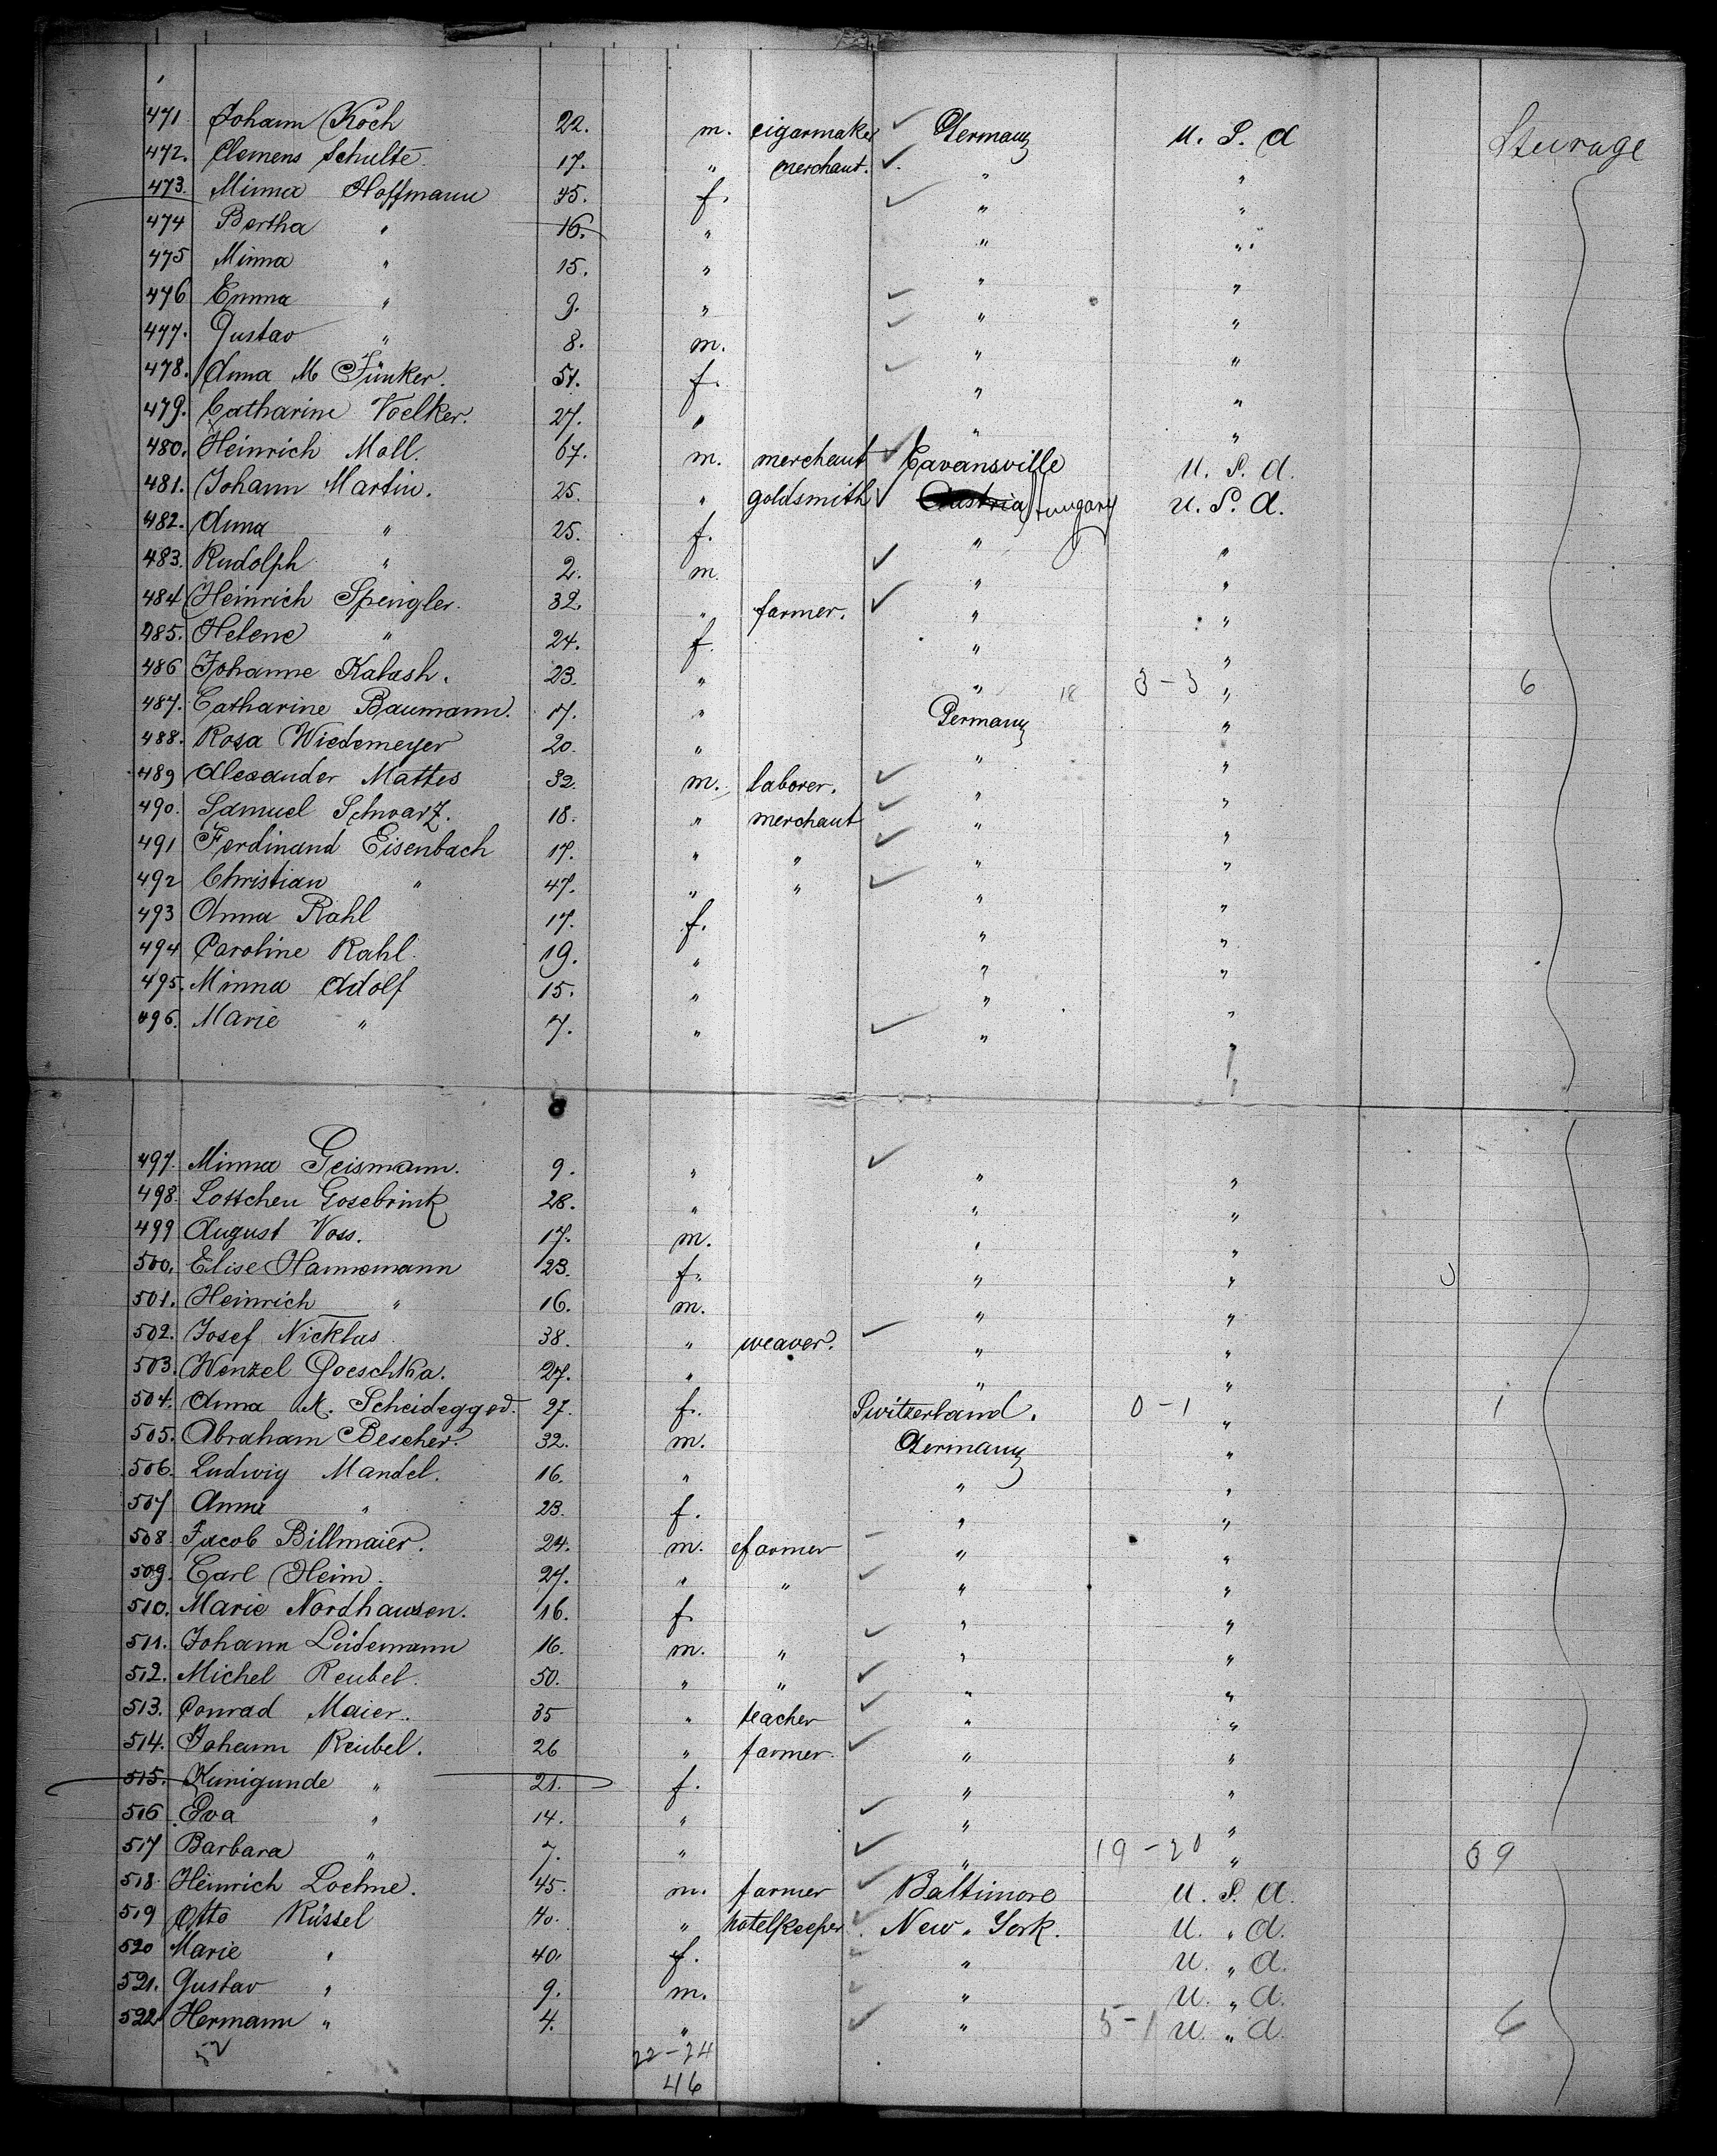 471 Johann Koch 22. m. cigarmaker Germany U. S. A Steerage
472. Clemens Schulte. 17. " merchant. " "
473. Minna Hoffmann 45. f. " "
474 Bertha " 16. " " "
475 Minna " 15. " " "
476 Emma " 9. " " "
477. Gustav " 8. m. " "
478. Anna M Fünker. 51. f. " "
479. Catharine Voelker. 27. " " "
480. Heinrich Moll. 67. m. merchant Eavansville U. S. A.
481. Johann Martin. 25. " goldsmith Austria Hungary U. S. A.
482. Anna " 25. f. " "
483. Rudolph " 2. m. " "
484 Heinrich Spengler. 32. " farmer. " "
485. Helene " 24. f. " "
486 Johanne Kalash. 23. " " 18 3-3 " 6
487. Catharine Baumann. 17. " Germany "
488. Rosa Wiedemeyer 20. " " "
489 Alexander Mattes 32. m. laborer. " "
490. Samuel Schwarz. 18. " merchant " "
491 Ferdinand Eisenbach 17. " " " "
492 Christian " 47. " " " "
493 Anna Rahl 17. f. " "
494 Caroline Rahl. 19. " " "
495. Minna Adolf 15. " " "
496. Marie " 7. " " "
497. Minna Geismann. 9. " " "
498. Lottchen Gosebrink 28. " " "
499 August Voss. 17. m. " "
500. Elise Hannemann 23. f. " "
501. Heinrich " 16. m. " "
502. Josef Nicklas 38. " weaver. " "
503. Wenzel Poeschka. 27. " " "
504. Anna M. Scheidegged. 27. f. Switzerland. 0-1 " 1
505. Abraham Bescher. 32. m. Germany "
506. Ludwig Mandel. 16. " " "
507 Anna " 23. f. " "
508. Jacob Billmaier. 24. m. farmer " "
509. Carl Heim. 27. " " " "
510. Marie Nordhausen. 16. f. " "
511. Johann Leidemann 16. m. " " "
512. Michel Reubel. 50. " " " "
513. Conrad Maier. 35 " teacher " "
514. Johann Reubel. 26 " farmer. " "
515. Kunigunde " 21. f. " "
516 Eva " 14. " " "
517 Barbara " 7. " " 19-20 " 39
518. Heinrich Loehne. 45. m. farmer Baltimore U. S. A.
519 Otto Rüssel 40. " hotelkeeper. New York. U. " A.
520 Marie " 40. f. " U. " A.
521. Gustav " 9. m. " U. " A.
522 Hermann " 4. " " 5-1 U. " A. 6
52 22-24
46